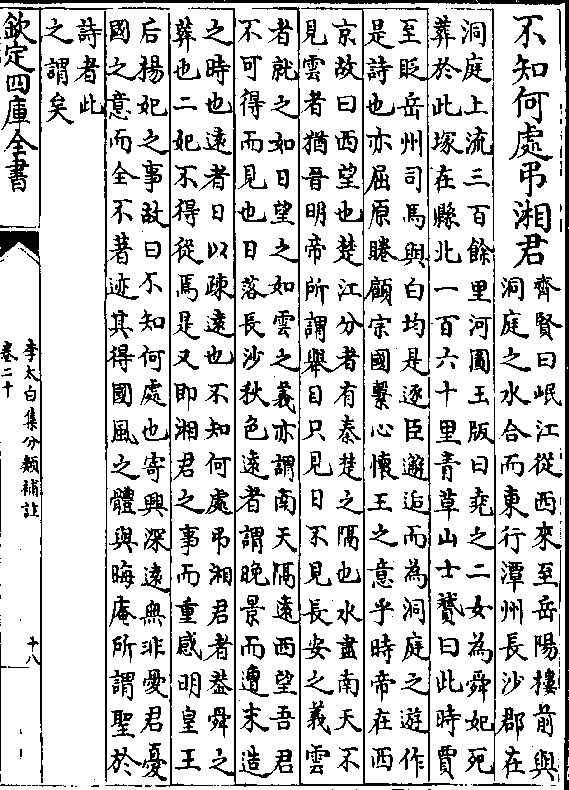 不知何處弔湘君
齊賢曰岷江從西來至岳陽樓前與
洞庭之水合而東行潭州長沙郡在
洞庭上流三百餘里河圖王版曰堯之二女為舜妃死
葬於此塚在縣北一百六十里青草山士贇曰此時賈
至貶岳州司馬與白均是逐臣邂逅而為洞庭之遊作
是詩也亦屈原睠顧宗國繫心懷王之意乎時帝在西
京故曰西望也楚江分者有秦楚之隔也水盡南天不
見雲者猶晉明帝所謂舉目只見日不見長安之義雲
者就之如日望之如雲之義亦謂南天隔遠西望吾君
不可得而見也日落長沙秋色遠者謂晚景而遭末造
之時也遠者日以疎遠也不知何處弔湘君者葢舜之
葬也二妃不得從焉是又即湘君之事而重感明皇王
后楊妃之事故曰不知何處也寄興深遠無非愛君憂
國之意而全不著迹其得國風之體與晦庵所謂聖於
詩者此
之謂矣
欽定四庫全書
李太白集分類補註
卷二十
十八